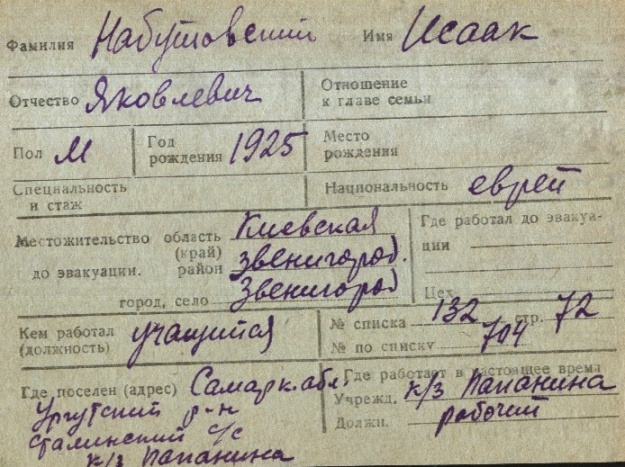 Фамилия Набутовский Имя Исаак
Отчество Яковлевич Отношение к главе семьи
Пол М Год рождения 1925 Место рождения
Специальность и стаж Национальность еврей
Местожительство область Киевская Где работал до эвакуа-
(край) ции
до эвакуации. район Звенигород.
город, село Звенигород Цех
Кем работал учащийся № списка 132 стр. 72
(должность) № по списку 704
Где поселен (адрес) Самарк. обл. Где работает в настоящее время
Ургутский р-н Учрежд. к/з Папанина
Сталинский с/с Должн. рабочий
к/з Папанина